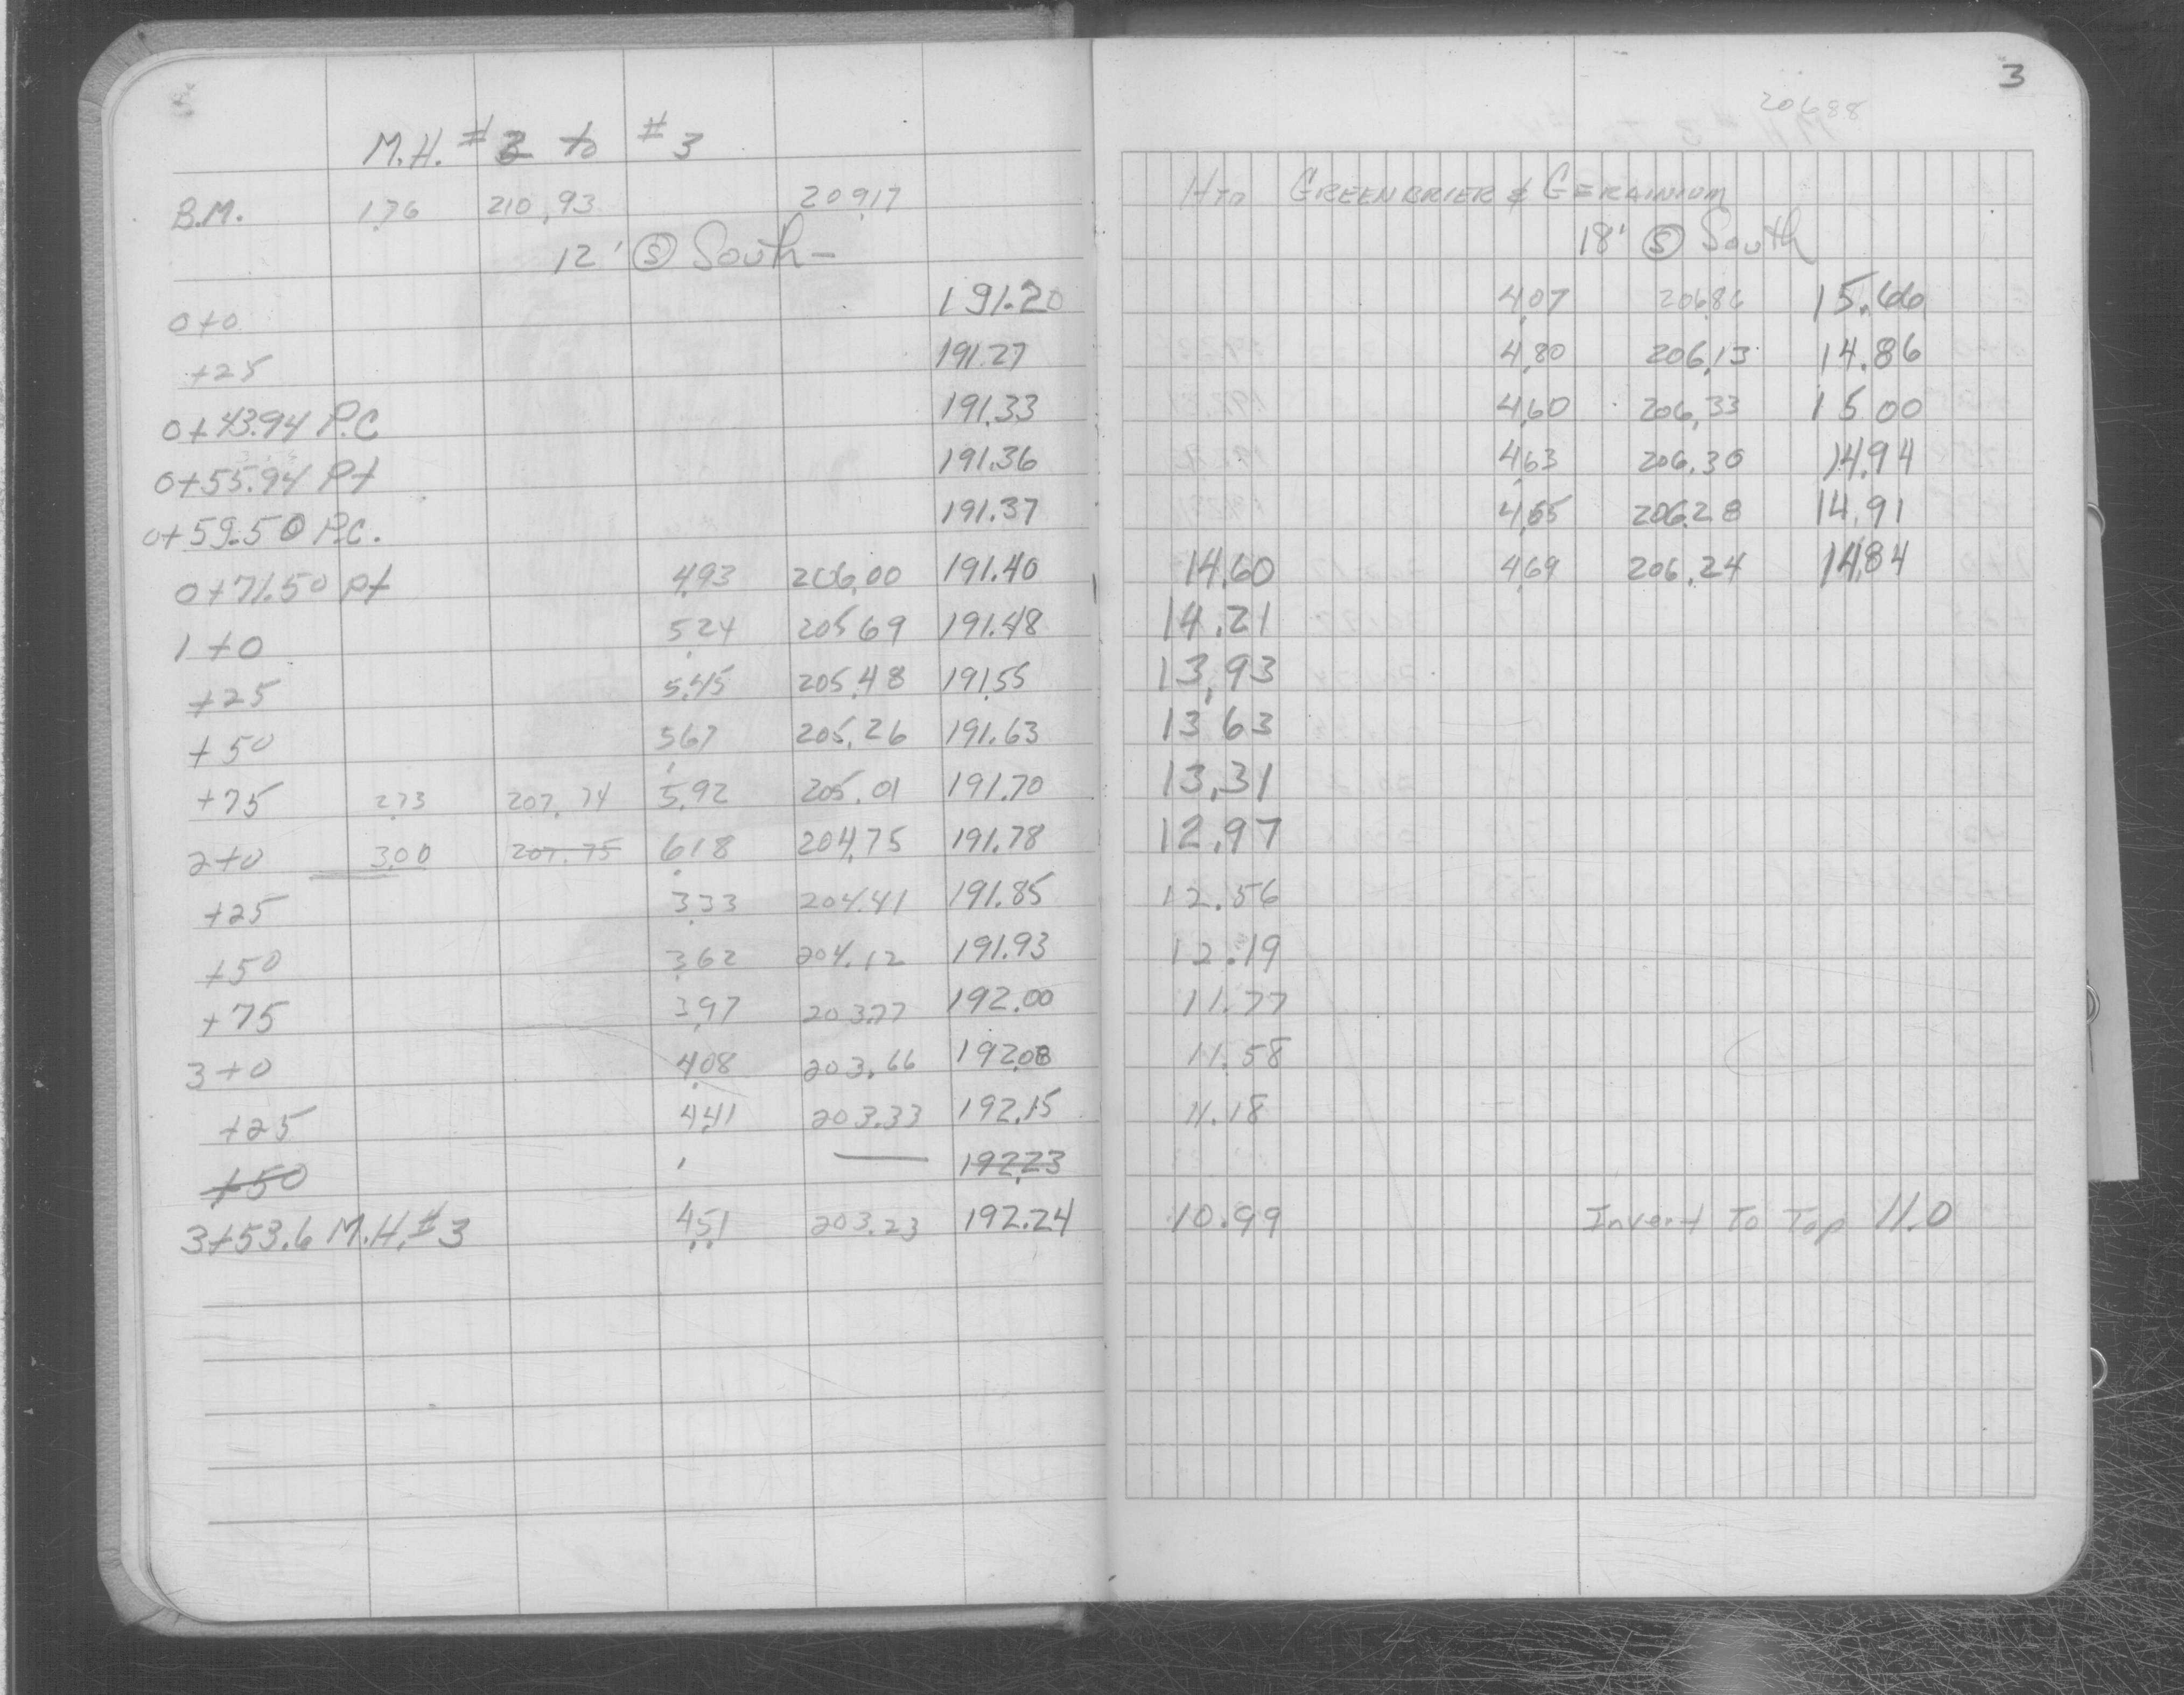 3
20688
M.H. #2 to #3
B.M. 1.76 210.93 209.17 HYD GREENBRIER & GERAINIUM
12' Ⓢ South- 18' Ⓢ South
0+0 191.20 4.07 206.86 15.66
+25 191.27 4.80 206.13 14.86
0+43.94 P.C 191.33 4.60 206.33 15 00
0+55.94 Pt 191.36 4.63 206.30 14.94
0+59.50 P.C. 191.37 4.65 206.28 14.91
0+71.50 pt 4.93 206.00 191.40 14.60 4.69 206.24 14.84
1+0 5.24 205 69 191.48 14.21
+25 5.45 205.48 191.55 13.93
+50 5.67 205.26 191.63 13 63
+75 2.73 207.74 5.92 205.01 191.70 13.31
2+0 3.00 207.75 6.18 204.75 191.78 12.97
+25 3.33 204.41 191.85 12.56
+50 3.62 204.12 191.93 12.19
+75 3.97 203.77 192.00 11.77
3+0 4.08 203.66 192.08 11.58
+25 4.41 203.33 192.15 11.18
+50 — 192.23
3+53.6 M.H.#3 4.51 203.23 192.24 10.99 Invert To Top 11.0